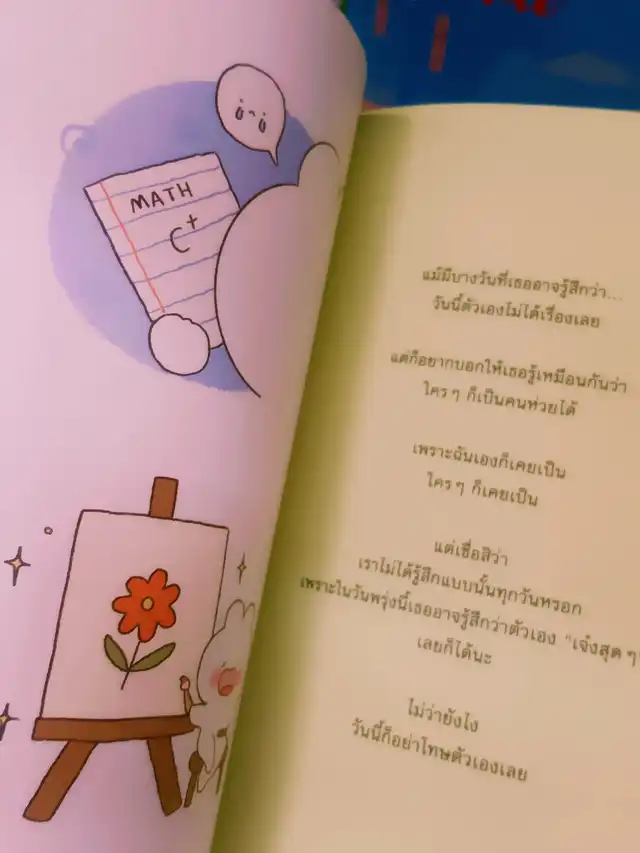 MATH
C+
แม้มีบางวันที่เธออาจรู้สึกว่า...
วันนี้ตัวเองไม่ได้เรื่องเลย
แต่ก็อยากบอกให้เธอรู้เหมือนกันว่า
ใครๆ ก็เป็นคนห่วยได้
เพราะฉันเองก็เคยเป็น
ใครๆ ก็เคยเป็น
แต่เชื่อสิว่า
เราไม่ได้รู้สึกแบบนั้นทุกวันหรอก
เพราะในวันพรุ่งนี้เธออาจรู้สึกว่าตัวเอง "เจ๋งสุดๆ"
เลยก็ได้นะ
ไม่ว่ายังไง
วันนี้ก็อย่าโทษตัวเองเลย